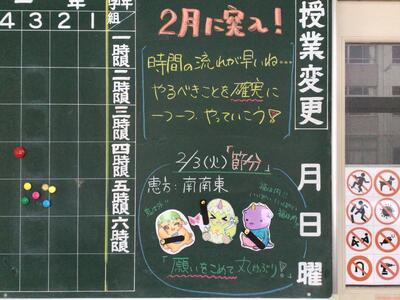 学年
組
4 3 2 1
年
一時限
二時限
三時限
四時限
五時限
六時限
2月に突入!
時間の流れが早いね…
やるべきことを確実に
一つ一つやっていこう!
2/3(火)「節分」
恵方:南南東
「願いをこめて丸かぶり!」
授業変更
月
日
曜